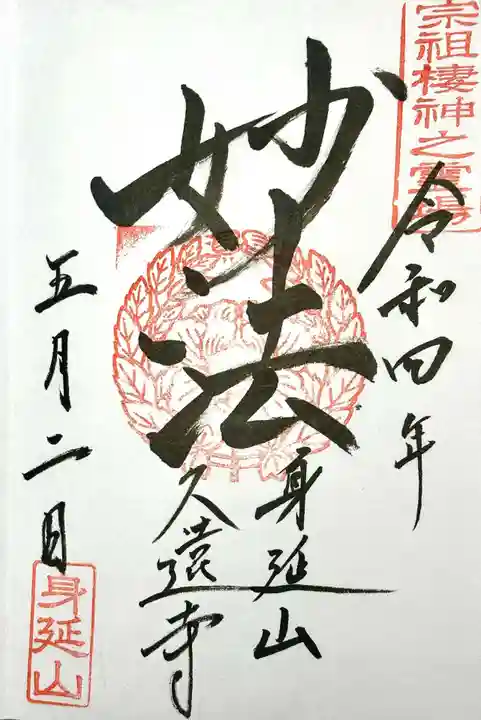 宗祖棲神之霊場
令和四年
妙法
身延山
久遠寺
五月二日
身延山